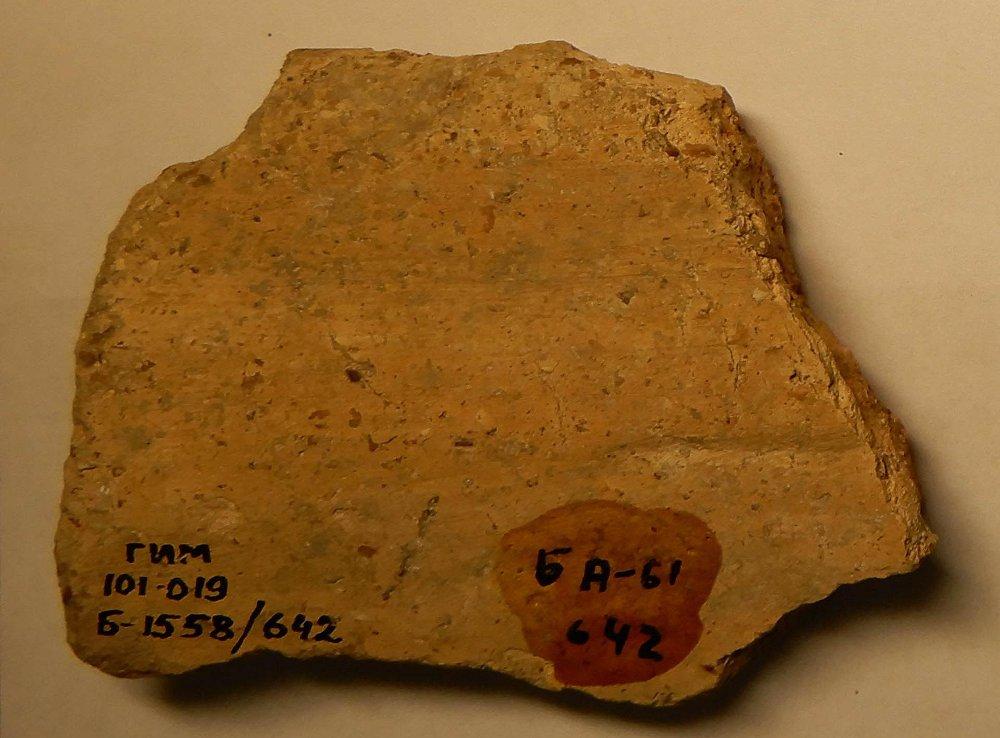 ГИМ
101-019
Б-1558/642
Б А-61
642